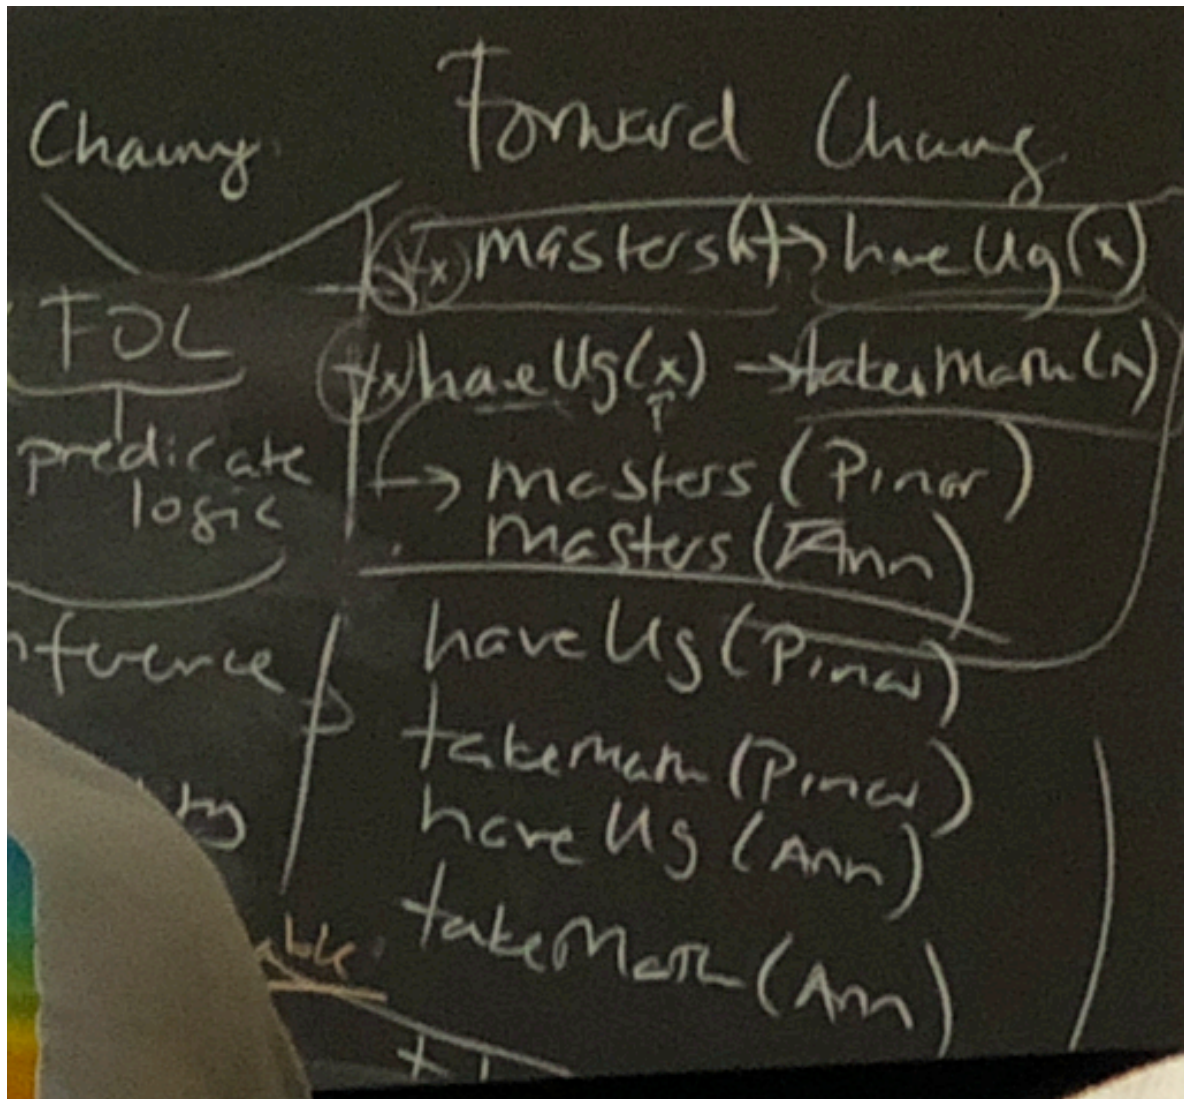 Chaining
FOL
predicate
logic
Forward Chaining
∀x masters(x) → haveUg(x)
∀x haveUg(x) → takesMath(x)
→ masters (Pinar)
masters (Ann)
haveUg (Pinar)
takeMath (Pinar)
haveUg (Ann)
takeMath (Ann)